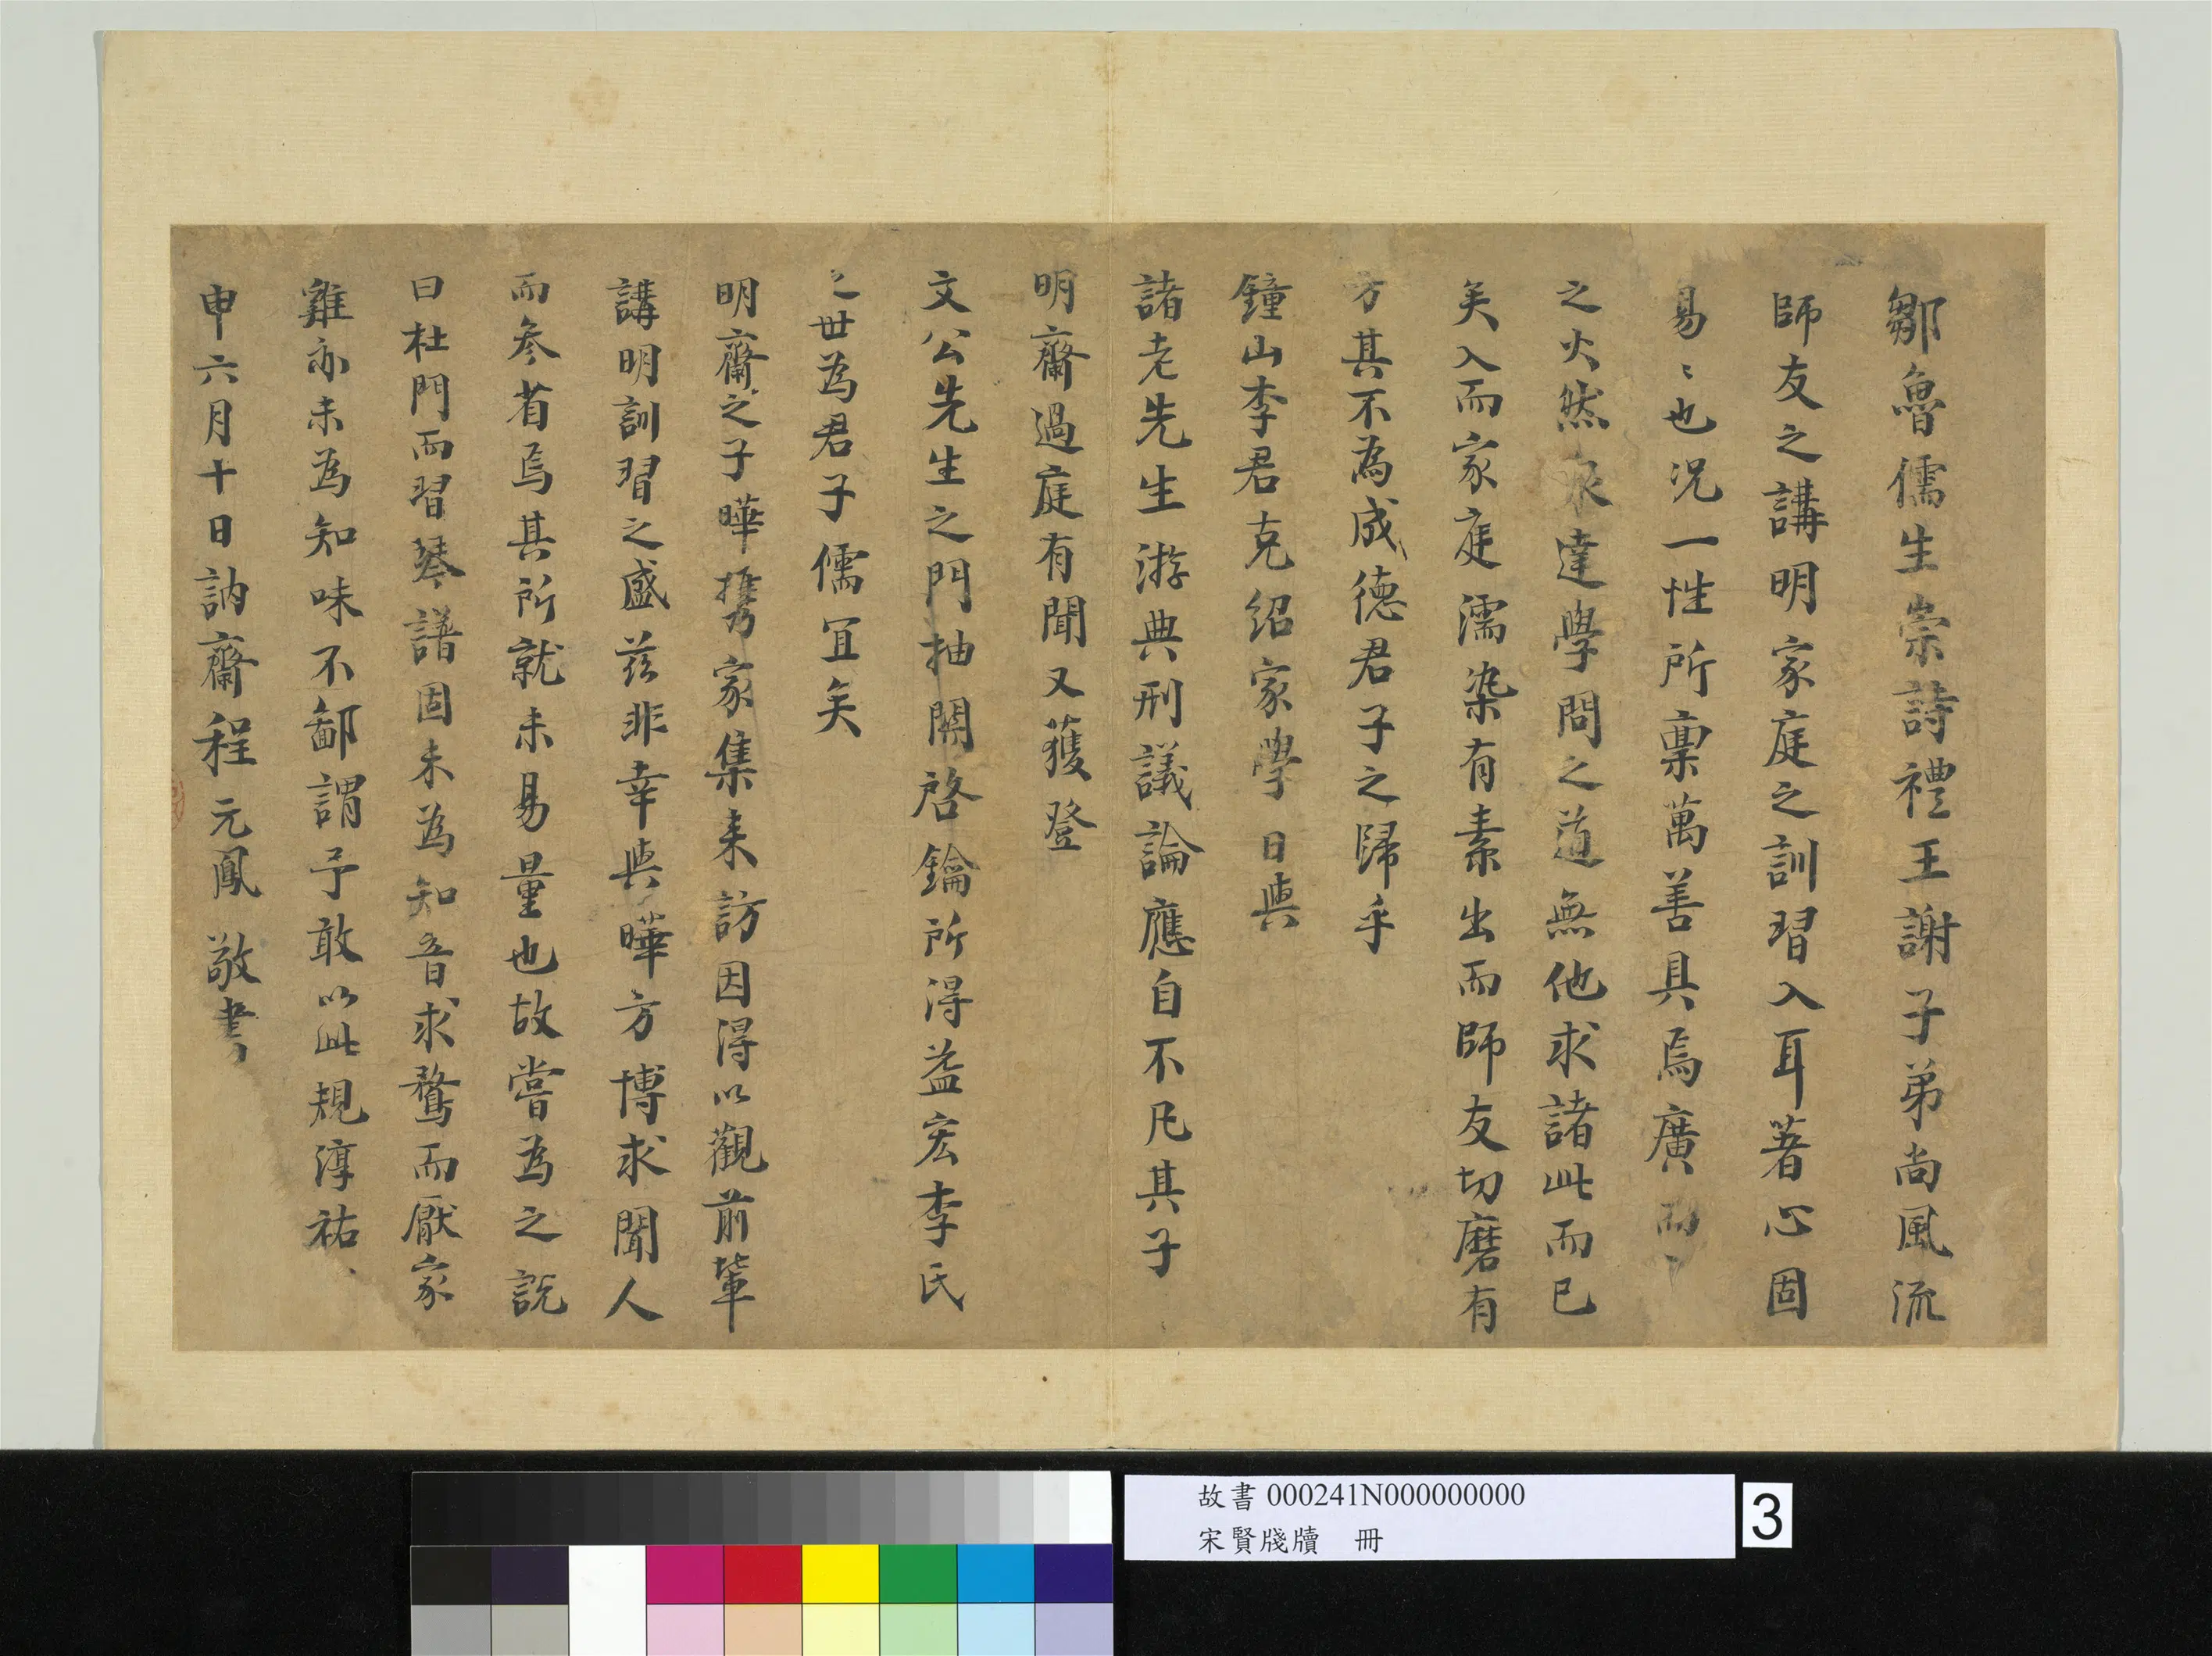 鄒魯儒生崇詩禮王謝子弟尚風流
師友之講明家庭之訓習入耳著心固
易〻也况一性所稟萬善具焉廣而
之火然泉達學問之道無他求諸此而已
矣入而家庭濡染有素出而師友切磨有
方其不為成德君子之歸乎
鐘山李君克紹家學日與
諸老先生游典刑議論應自不凡其子
明齋過庭有聞又獲登
文公先生之門抽關啓鑰所得益宏李氏
之世為君子儒宜矣
明齋之子曄攜家集来訪因得以觀前輩
講明訓習之盛茲非幸與曄方博求聞人
而叅省焉其所就未易量也故嘗為之說
曰杜門而習琴譜固未為知音求鶩而厭家
雞亦未為知味不鄙謂予敢以此規淳祐
申六月十日訥齋程元鳳敬書
故書000241N000000000
宋賢牋牘 冊
3